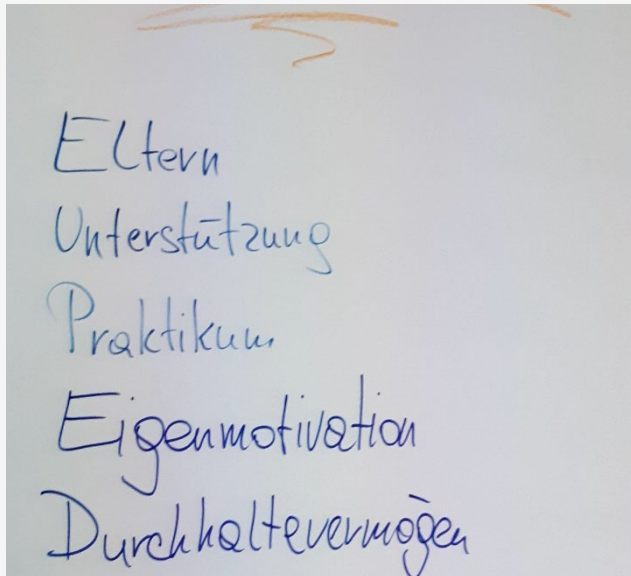 Eltern
Unterstützung
Praktikum
Eigenmotivation
Durchhaltevermögen